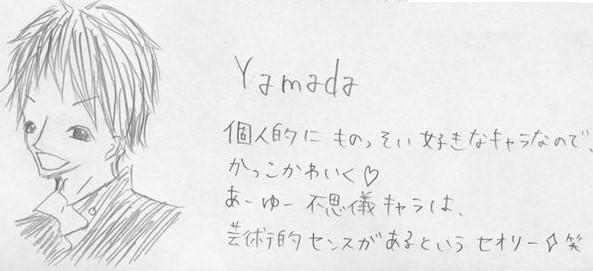 Yamada
個人的に ものっそい 好きなキャラなので、
かっこかわいく♡
あーゆー 不思儀キャラは、
芸術的センスがあるという セオリー☆笑